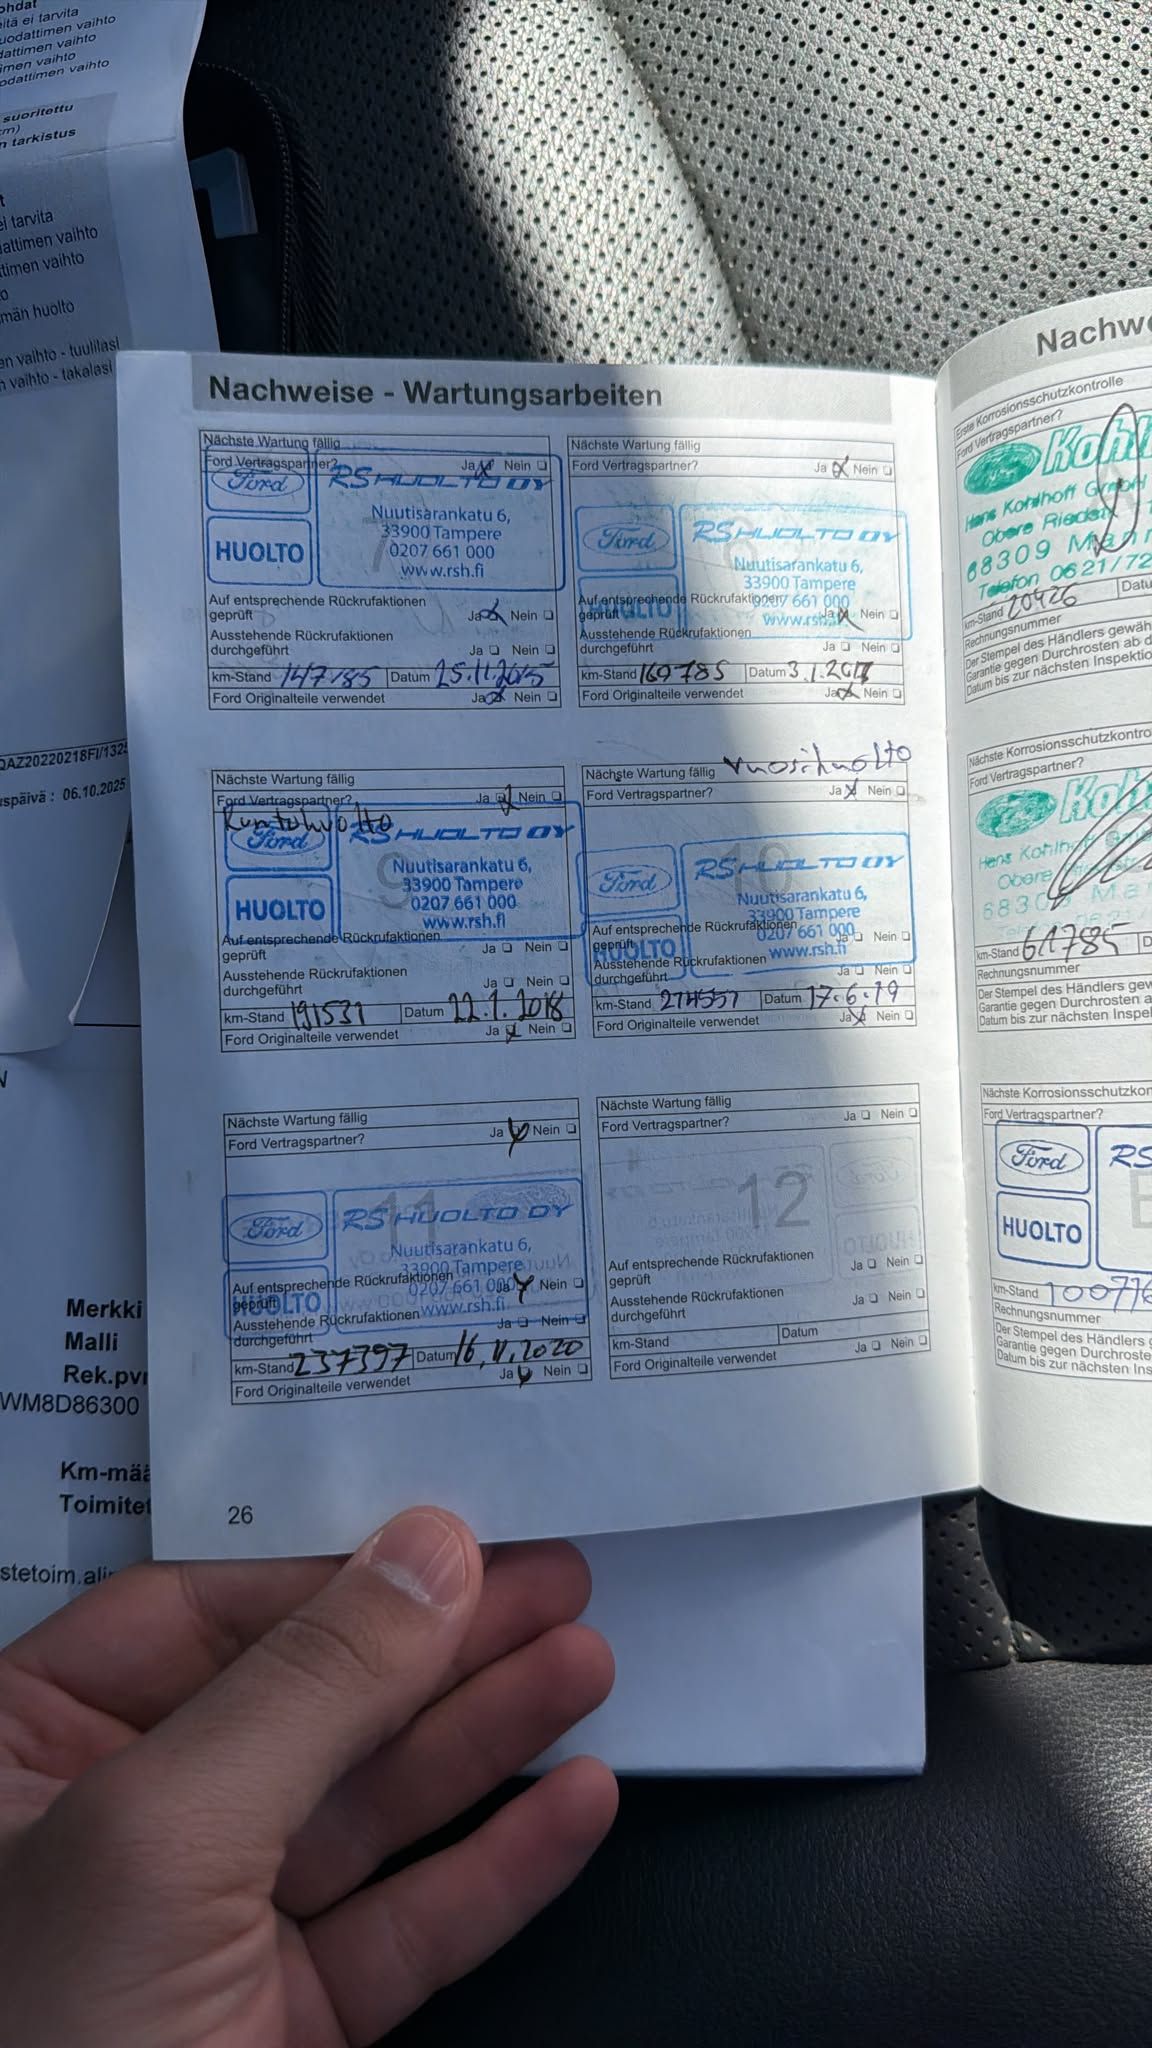 ohdat
eitä ei tarvita
uodattimen vaihto
dattimen vaihto
imen vaihto
odattimen vaihto
suoritettu
m)
n tarkistus
t
ei tarvita
dattimen vaihto
ttimen vaihto
o
män huolto
en vaihto - tuulilasi
n vaihto - takalasi
QAZ20220218FI/1325
späivä : 06.10.2025
Merkki
Malli
Rek.pvm
WM8D86300
Km-mää
Toimitet
stetoim.ali
Nachweise - Wartungsarbeiten
Nächste Wartung fällig
Ford Vertragspartner? Ja Nein
Ford RS HUOLTO OY
HUOLTO
Nuutisarankatu 6,
33900 Tampere
0207 661 000
www.rsh.fi
7
Auf entsprechende Rückrufaktionen
geprüft Ja Nein
Ausstehende Rückrufaktionen
durchgeführt Ja Nein
km-Stand 147785 Datum 25.11.2015
Ford Originalteile verwendet Ja Nein
Nächste Wartung fällig
Ford Vertragspartner? Ja Nein
Ford RS HUOLTO OY
HUOLTO
Nuutisarankatu 6,
33900 Tampere
0207 661 000
www.rsh.fi
Auf entsprechende Rückrufaktionen
geprüft Ja Nein
Ausstehende Rückrufaktionen
durchgeführt Ja Nein
km-Stand 169785 Datum 3.1.2017
Ford Originalteile verwendet Ja Nein
Nächste Wartung fällig
Ford Vertragspartner? Ja Nein
Kuntohuolto
Ford RS HUOLTO OY
HUOLTO
Nuutisarankatu 6,
33900 Tampere
0207 661 000
www.rsh.fi
9
Auf entsprechende Rückrufaktionen
geprüft Ja Nein
Ausstehende Rückrufaktionen
durchgeführt Ja Nein
km-Stand 191531 Datum 22.1.2018
Ford Originalteile verwendet Ja Nein
Nächste Wartung fällig vuosihuolto
Ford Vertragspartner? Ja Nein
Ford RS HUOLTO OY
HUOLTO
Nuutisarankatu 6,
33900 Tampere
0207 661 000
www.rsh.fi
10
Auf entsprechende Rückrufaktionen
geprüft Ja Nein
Ausstehende Rückrufaktionen
durchgeführt Ja Nein
km-Stand Datum 17.6.19
Ford Originalteile verwendet Ja Nein
Nächste Wartung fällig
Ford Vertragspartner? Ja Nein
Ford RS HUOLTO OY
HUOLTO
Nuutisarankatu 6,
33900 Tampere
0207 661 000
www.rsh.fi
11
Auf entsprechende Rückrufaktionen
geprüft Ja Nein
Ausstehende Rückrufaktionen
durchgeführt Ja Nein
km-Stand 237397 Datum 16.11.2020
Ford Originalteile verwendet Ja Nein
Nächste Wartung fällig
Ford Vertragspartner? Ja Nein
12
Auf entsprechende Rückrufaktionen
geprüft Ja Nein
Ausstehende Rückrufaktionen
durchgeführt Ja Nein
km-Stand Datum
Ford Originalteile verwendet Ja Nein
26
Nachwe
Erste Korrosionsschutzkontrolle
Ford Vertragspartner?
Kohl
Hans Kohlhoff GmbH
Obere Ried
68309 Mann
Telefon 0621/72
km-Stand 20426 Datu
Rechnungsnummer
Der Stempel des Händlers gewäh
Garantie gegen Durchrosten ab d
Datum bis zur nächsten Inspektio
Nächste Korrosionsschutzkontro
Ford Vertragspartner?
Koh
Hans Kohlhoff
Obere
6830 Ma
km-Stand 61785 D
Rechnungsnummer
Der Stempel des Händlers gew
Garantie gegen Durchrosten a
Datum bis zur nächsten Inspe
Nächste Korrosionsschutzkon
Ford Vertragspartner?
Ford RS
HUOLTO
km-Stand 100776
Rechnungsnummer
Der Stempel des Händlers g
Garantie gegen Durchroste
Datum bis zur nächsten Ins